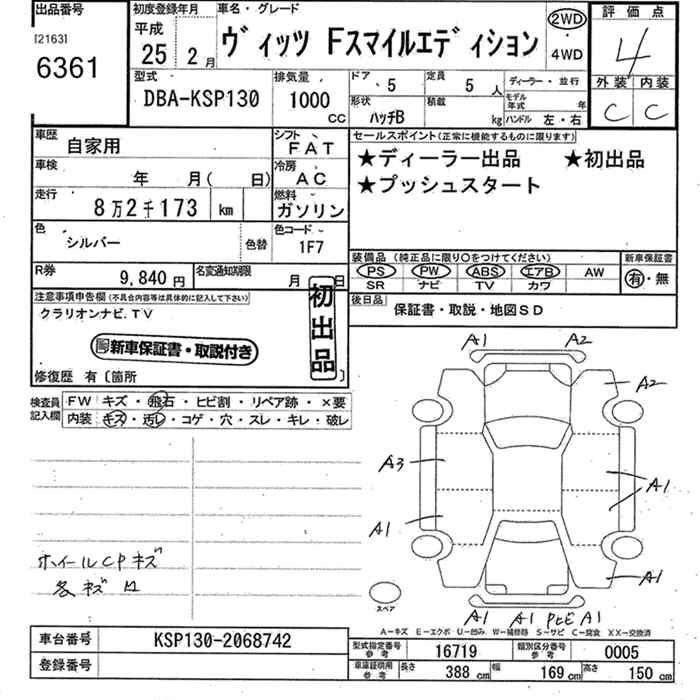 出品番号 初度登録年月 車名・グレード 評価点
[2163] 平成 ヴィッツ Fスマイルエディション 2WD・4WD 4
6361 25年 2月
型式 排気量 ドア 定員 ディーラー・並行 外装 内装
DBA-KSP130 1000CC 5 5人 モデル年式 年 C C
形状 ハッチB 積載 kg ハンドル 左・右
車歴 自家用 シフト FAT セールスポイント(正常に機能するものに限ります)
車検 年 月( 日) 冷房 AC ★ディーラー出品 ★初出品
走行 8万2千173 km 燃料 ガソリン ★プッシュスタート
色 シルバー 色替 色コード 1F7
装備品(純正品に限り○をつけてください) 新車保証書
PS PW ABS エアB AW 有・無
SR ナビ TV カワ
R券 9,840円 名変通知期限 月 日
後日品 保証書・取説・地図SD
注意事項申告欄(不具合内容等は具体的に記入して下さい) 初出品
クラリオンナビ.TV
新車保証書・取説付き
修復歴 有〔箇所
検査員記入欄 FW キズ・飛石・ヒビ割・リペア跡・×要
内装 キズ・汚レ・コゲ・穴・スレ・キレ・破レ
A1 A2
A2
A3 A1
A1
A1
ホイールCPキズ
各キズ
スペア
A1 A1 PLE A1
A―キズ E―エクボ U―凹み W―補修跡 S―サビ C―腐食 XX―交換済
車台番号 KSP130-2068742
登録番号
型式指定番号 参考 16719 類別区分番号 参考 0005
車庫証明用 参考 長さ 388cm 幅 169cm 高さ 150cm